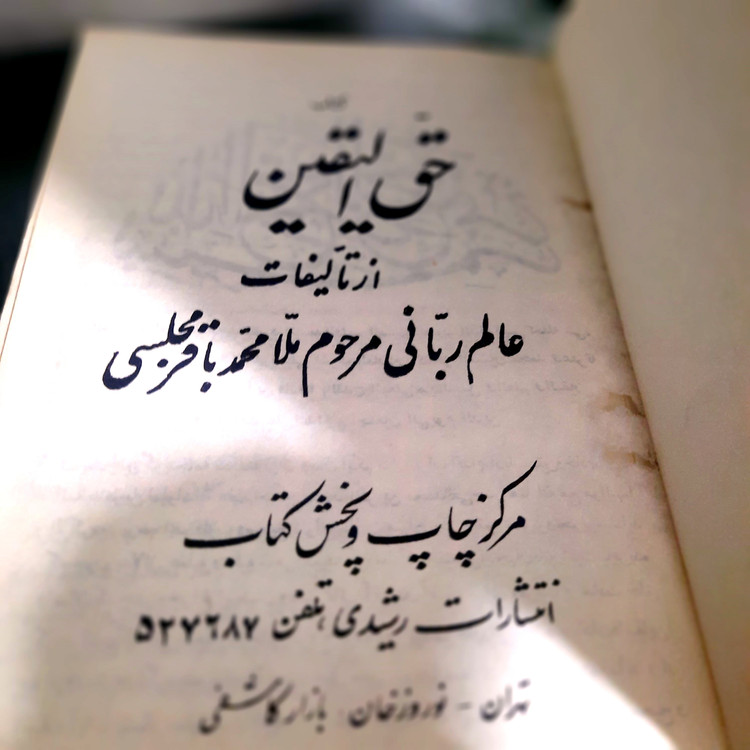 حق الیقین
از تألیفات
عالم ربّانی مرحوم ملّا محمّد باقر مجلسی
مرکز چاپ و پخش کتاب
انتشارات رشیدی تلفن ۵۲۷۶۸۷
تهران - نوروزخان بازار کاشفی